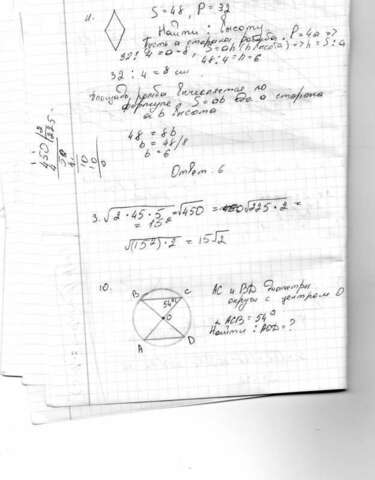 11. S = 48, P = 32
Найти: Высоту
Пусть а сторона ромба, P = 4a =>
32 : 4 = a = 8, S = ah (h высота) => h = S : a
48 : = 6
32 : 4 = 8 см
Площадь ромба вычисляется по
формуле S = ab где a сторона
а b высота
48 = 8b
b = 48/8
b = 6
Ответ. 6
3. √2 · 45 · 5 = √450 = √225 · 2 =
= 15²
√(15²) · 2 = 15√2
10. AC и BD диаметры
окруж с центром O
∠ACB = 54°
Найти: AOD = ?
B
C
54°
O
A
D